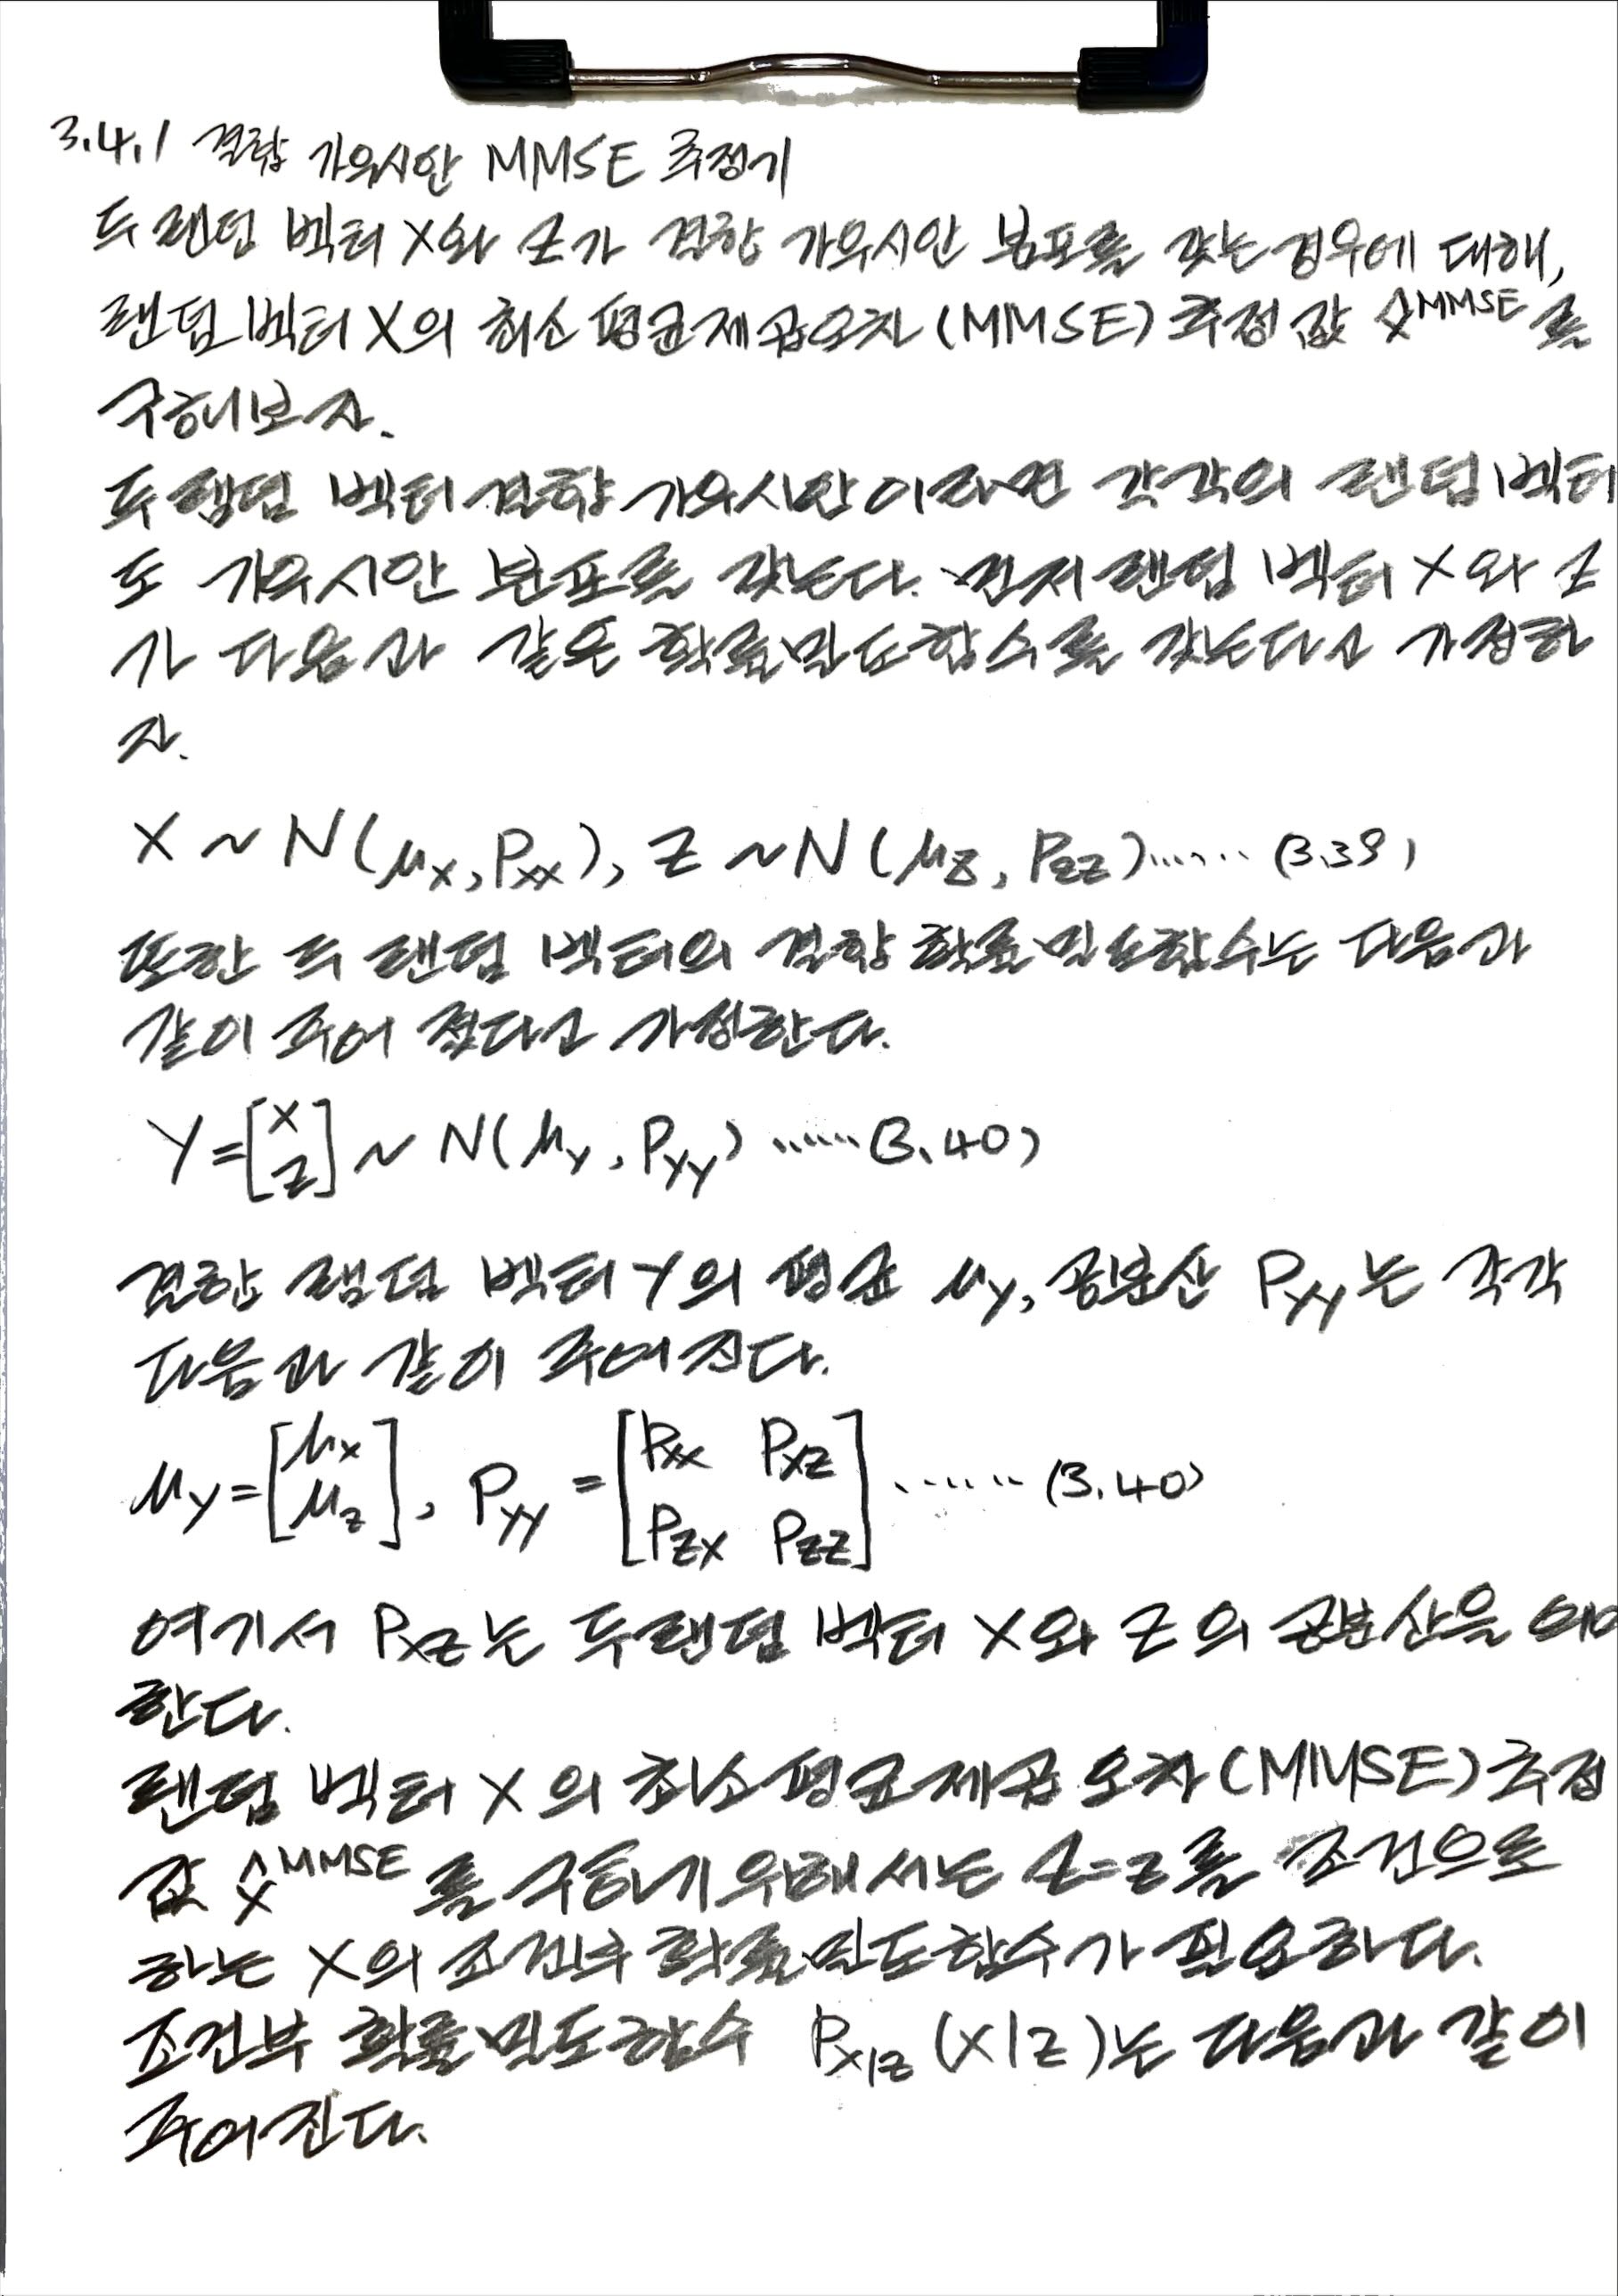 3.4.1 결합 가우시안 MMSE 추정기
두 랜덤 벡터 X와 Z가 결합 가우시안 분포를 갖는 경우에 대해,
랜덤 벡터 X의 최소 평균제곱오차(MMSE) 추정 값 x̂^MMSE를
구해보자.
두 랜덤 벡터 결합 가우시안이라면 각각의 랜덤 벡터
도 가우시안 분포를 갖는다. 먼저 랜덤 벡터 X와 Z
가 다음과 같은 확률밀도함수를 갖는다고 가정하
자.
X ~ N(μ_X, P_XX), Z ~ N(μ_Z, P_ZZ)...... (3.39)
또한 두 랜덤 벡터의 결합 확률밀도함수는 다음과
같이 주어 졌다고 가정한다.
Y = [X Z] ~ N(μ_Y, P_YY) ...... (3.40)
결합 랜덤 벡터 Y의 평균 μ_Y, 공분산 P_YY는 각각
다음과 같이 주어진다.
μ_Y = [μ_X μ_Z], P_YY = [P_XX P_XZ P_ZX P_ZZ] ...... (3.40)
여기서 P_XZ는 두 랜덤 벡터 X와 Z의 공분산을 의미
한다.
랜덤 벡터 X의 최소평균제곱 오차(MMSE) 추정
값 x̂^MMSE를 구하기 위해서는 Z=z를 조건으로
하는 X의 조건부 확률밀도함수가 필요하다.
조건부 확률밀도함수 P_X|Z (x|z)는 다음과 같이
주어진다.